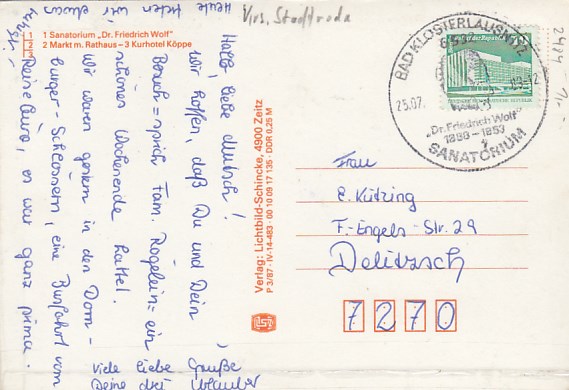 Vrs. Stadtroda
1 1 Sanatorium „Dr. Friedrich Wolf"
2 2 Markt m. Rathaus – 3 Kurhotel Köppe
3
Hallo, liebe Mutsch!
Wir hoffen, daß Du und Dein
Besuch = sprich Fam. Rögelein = ein
schönes Wochenende hattet.
Wir waren gestern in den Dorn-
burger-Schlössern, eine Busfahrt vom
Reisebüro, es war ganz prima.
Heute treten wir etwas
kürzer.
Viele liebe Grüße
Deine drei Urlauber
Verlag: Lichtbild-Schincke, 4900 Zeitz
P 3/87 · IV-14-483 · 00 10 09 17 135 · DDR 0,25 M
BAD KLOSTERLAUSNITZ
6539
25.07.
-12
„Dr. Friedrich Wolf"
1888 - 1953
SANATORIUM
Frau
E. Kützing
F.-Engels-Str. 29
Delitzsch
7270